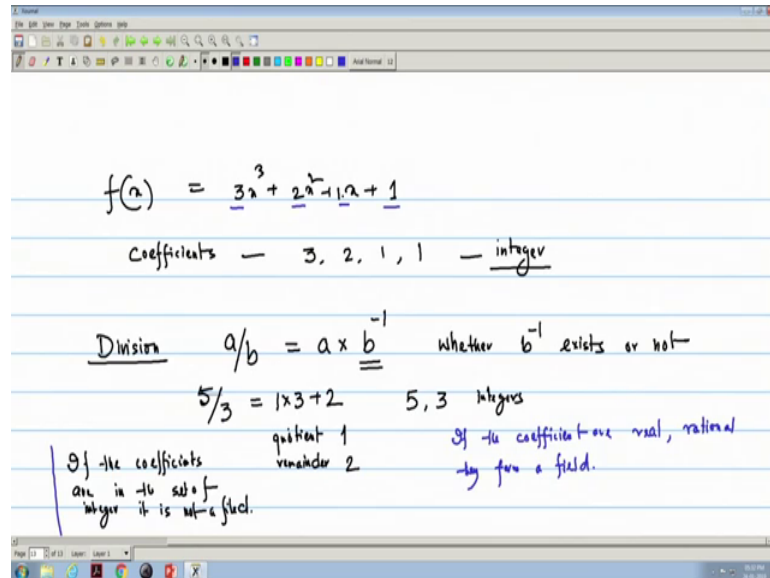 Journal
File Edit View Page Tools Options Help
Arial Normal 12
f(x) = 3x³ + 2x² + 1.x + 1
Coefficients — 3, 2, 1, 1 — integer
Division a/b = a × b⁻¹ whether b⁻¹ exists or not
5/3 = 1×3+2 5, 3 integers
quotient 1
remainder 2
If the coefficient are real, rational
they form a field.
If the coefficients
are in the set of
integer it is not a filed.
Page 13 of 13 Layer: Layer 1